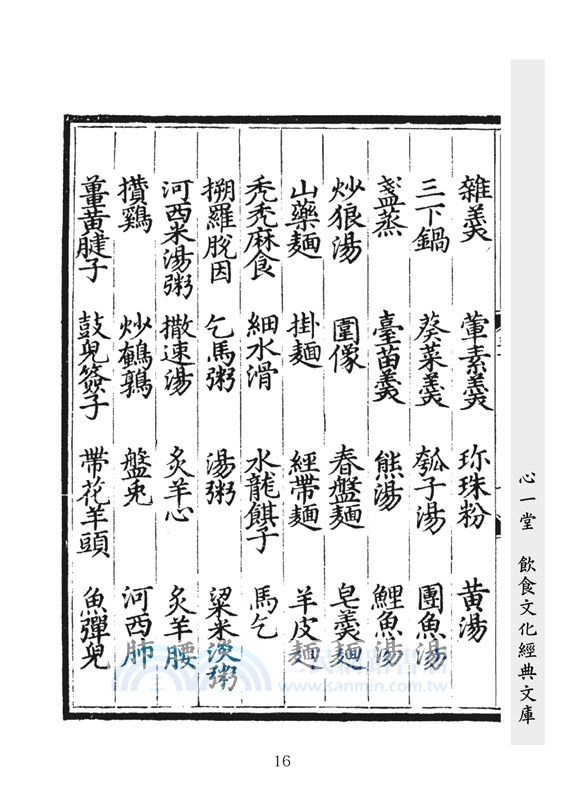 雜羹　葷素羹　珎珠粉　黄湯
三下鍋　葵菜羹　瓠子湯　團魚湯
盞蒸　臺苗羹　熊湯　鯉魚湯
炒狼湯　圍像　春盤麵　皂羹麵
山藥麵　掛麵　經帶麵　羊皮麵
禿禿麻食　細水滑　水龍子　馬乞
搠羅脫因　乞馬粥　湯粥　粱米淡粥
河西米湯粥　撒速湯　炙羊心　炙羊腰
攢鷄　炒鵪鶉　盤兎　河西肺
薑黄腱子　鼓兒簽子　帶花羊頭　魚彈兒
心一堂　飲食文化經典文庫
三民網路書店
www.sanmin.com.tw
16